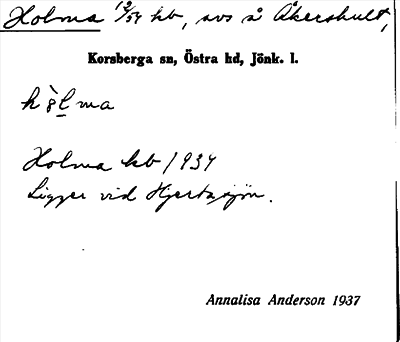 Holma 13/54 hb, avs å Åkershult,
Korsberga sn, Östra hd, Jönk. l.
Holma hb 1937
Ligger vid Hjertasjön.
Annalisa Anderson 1937